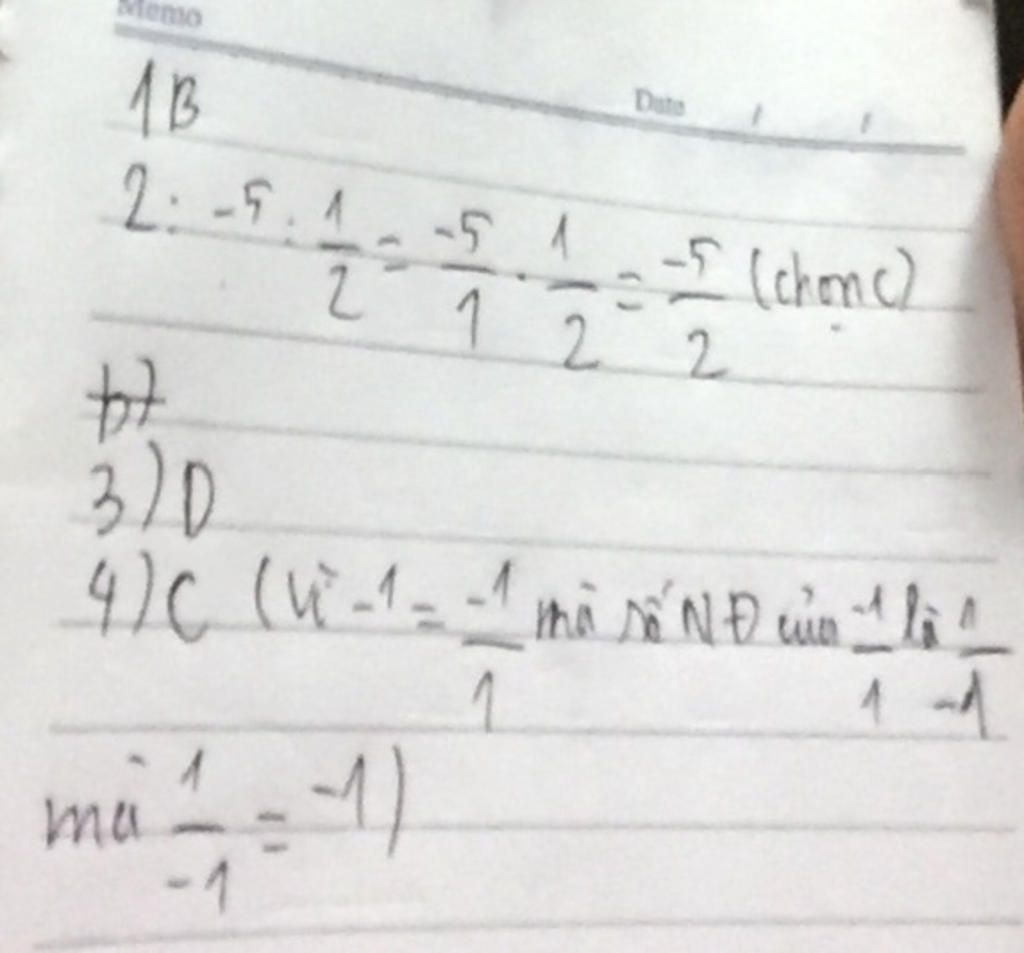 Memo
Date / /
1B
2. -5 : 1/2 = -5/1 . 1/2 = -5/2 (chọn C)
b)
3) D
4) C (Vì -1 = -1/1 mà số NĐ của -1/1 là 1/-1
mà 1/-1 = -1)